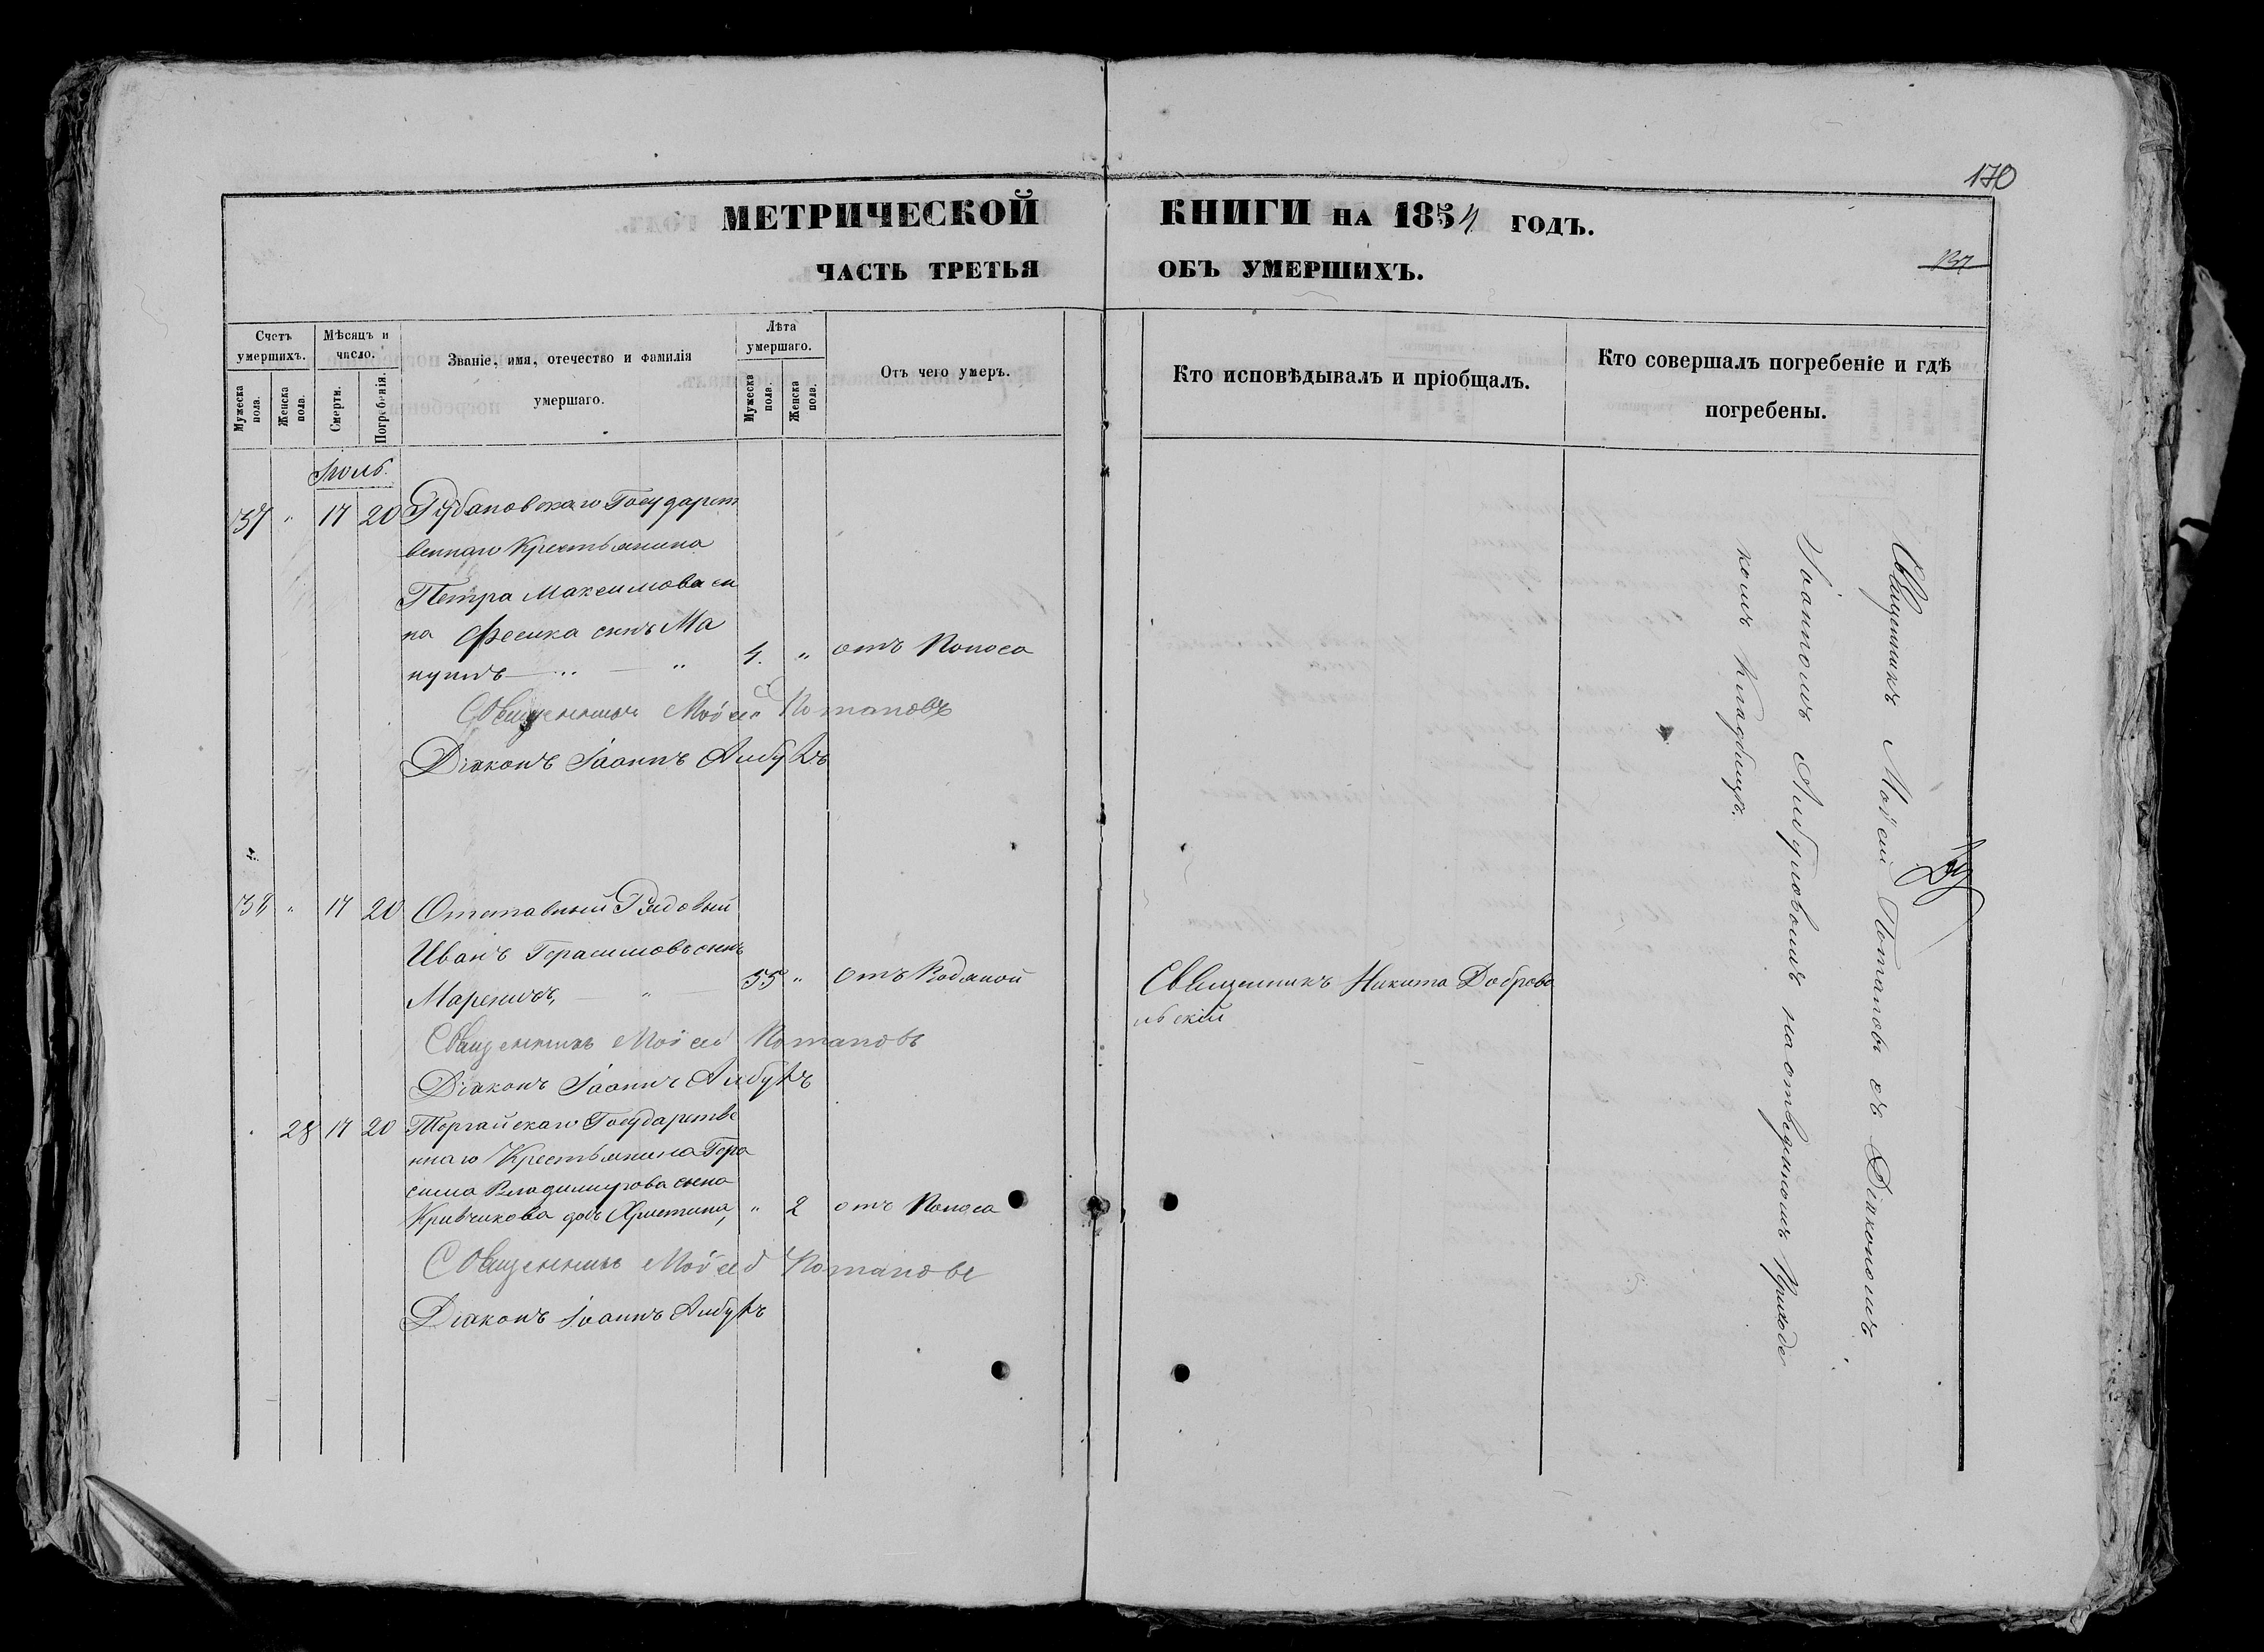 170
МЕТРИЧЕСКОЙ КНИГИ НА 1854 ГОДЪ.
ЧАСТЬ ТРЕТЬЯ ОБЪ УМЕРШИХЪ.
137
Счетъ умершихъ.
Мужеска пола.
Женска пола.
Мѣсяцъ и число.
Смерти.
Погребенія.
Званіе, имя, отечество и фамилія
умершаго.
Лѣта умершаго.
Мужеска пола.
Женска пола.
Отъ чего умеръ.
Кто исповѣдывалъ и пріобщалъ.
Кто совершалъ погребеніе и гдѣ
погребены.
Іюль.
37 " 17 20 Рубановскаго Государст
веннаго Крестьянина
Петра Максимова сы
на Фесика сынъ Ма
нуилъ — " — " 4. " отъ Поноса
Священникъ Мойсей Потаповъ
Діаконъ Іоаннъ
38 " 17 20 Отставный Рядовый
Иванъ Герасимовъ сынъ
Мареничъ, — " — 55 " отъ Водяной
Священникъ Никита Доброво
льскій
Священникъ Мойсей Потаповъ
Діаконъ Іоаннъ
" 28 17 20 Торгайскаго Государстве
ннаго Крестьянина Гера
сима Владимирова сына
Кривчикова дочь Христина, " 2 отъ Поноса
Священникъ Мойсей Потаповъ
Діаконъ Іоаннъ
Священникъ Мойсей Потаповъ съ Діакономъ
Іоанномъ на отведенномъ Приходс
комъ Кладбищѣ.